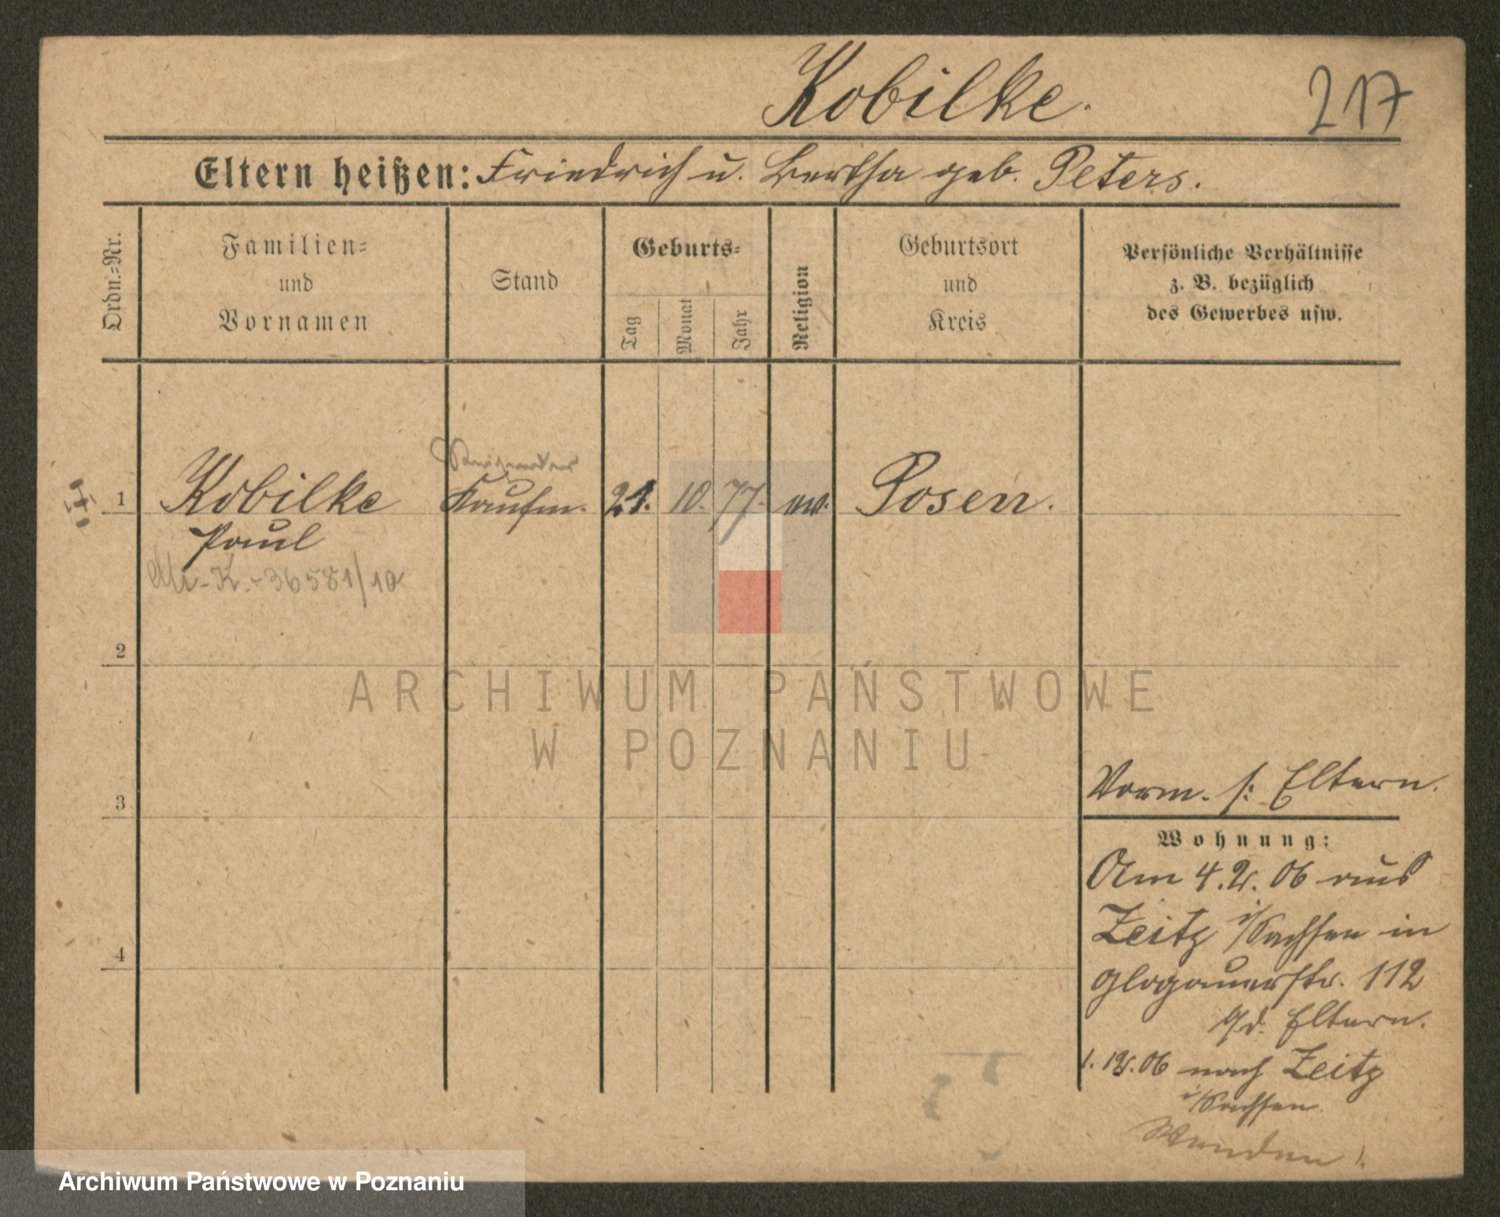 Kobilke.
217
Eltern heißen: Friedrich u. Bertha geb. Peters.
Ordn.-Nr.
Familien-
und
Vornamen
Stand
Geburts-
Tag
Monat
Jahr
Religion
Geburtsort
und
Kreis
Persönliche Verhältnisse
z. B. bezüglich
des Gewerbes usw.
1
Kobilke
Kaufm.
21.
10.
77.
ev.
Posen.
Paul
K.-36581/10
2
ARCHIWUM PAŃSTWOWE
W POZNANIU
3
Vorm. s: Eltern.
Wohnung:
Am 4.2.06 aus
Zeitz i/Sachsen in
Glogauerstr. 112
b/d. Eltern.
4
1. 12.06 nach Zeitz
i/Sachsen.
Wenden!
Archiwum Państwowe w Poznaniu